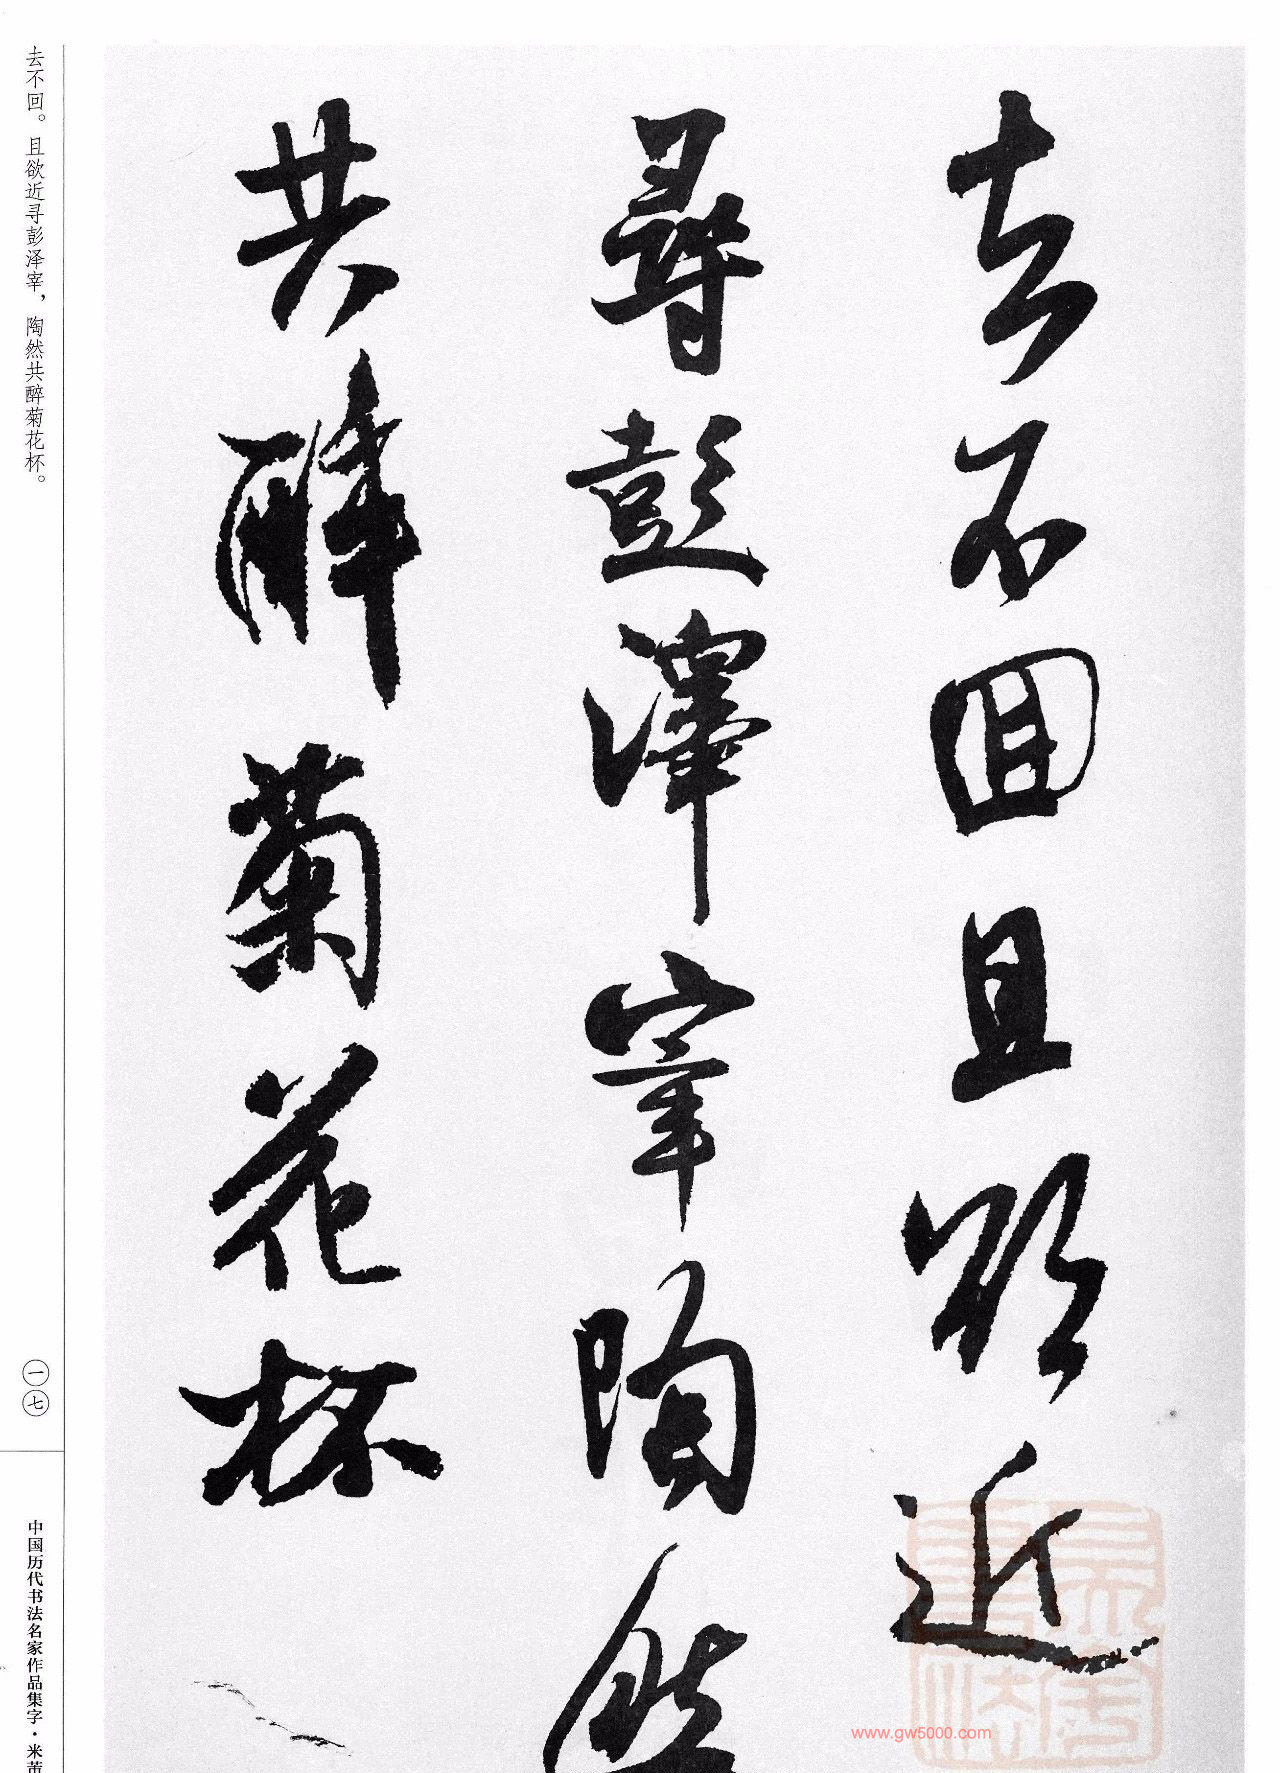 去不回且欲近
尋彭澤宰陶然
共醉菊花杯
去不回。且欲近寻彭泽宰，陶然共醉菊花杯。
一七
中国历代书法名家作品集字·米芾
www.gw5000.com